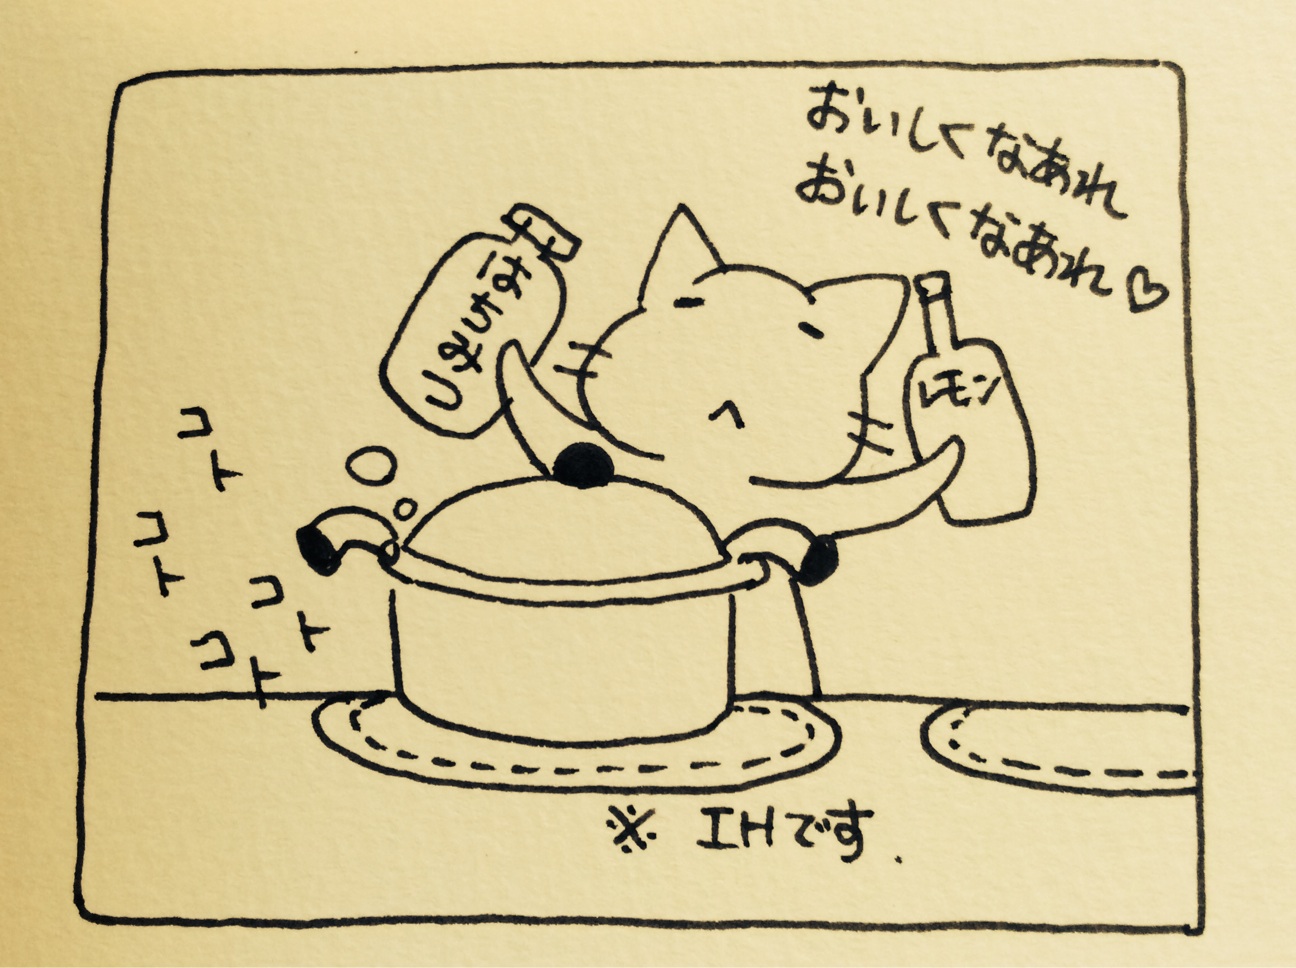 おいしくなあれ
おいしくなあれ♡
はちみつ
レモン
コト
コト
コト
コト
※ IHです.